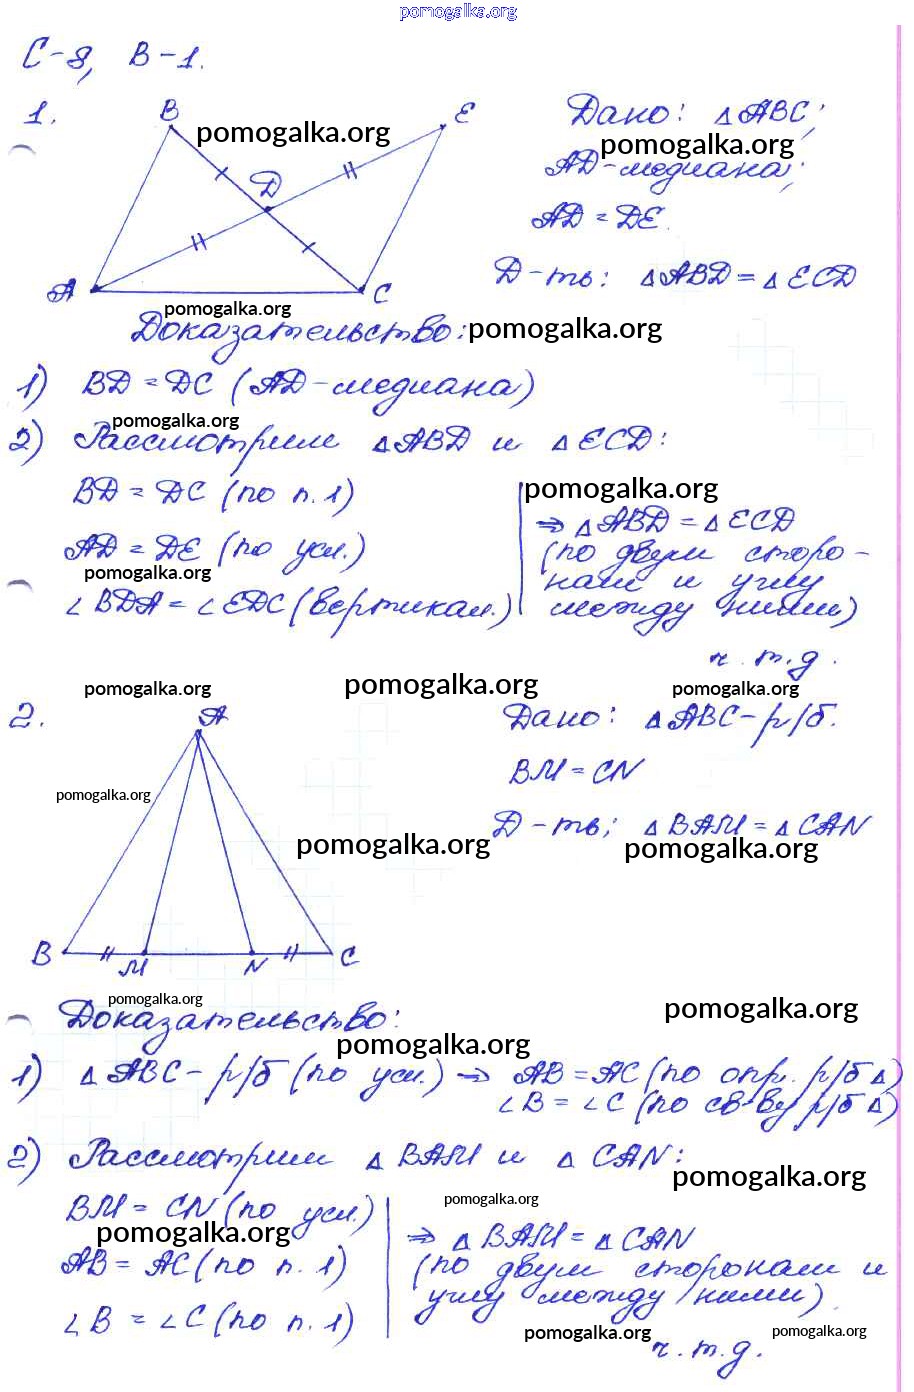 pomogalka.org
С-8, В-1.
1.
B
E
pomogalka.org
Дано: △ABC;
pomogalka.org
AD-медиана;
D
AD = DE.
Д-ть: △ABD = △ECD
A
C
pomogalka.org
Доказательство: pomogalka.org
1) BD = DC (AD-медиана)
pomogalka.org
2) Рассмотрим △ABD и △ECD:
BD = DC (по п. 1)
pomogalka.org
⇒ △ABD = △ECD
AD = DE (по усл.)
(по двум сторо-
pomogalka.org
нам и углу
∠BDA = ∠EDC (вертикал.)
между ними)
ч. т. д.
pomogalka.org pomogalka.org pomogalka.org
2.
A
Дано: △ABC-р/б.
BM = CN
pomogalka.org
Д-ть: △BAM = △CAN
pomogalka.org pomogalka.org
B
M
N
C
pomogalka.org
Доказательство:
pomogalka.org
pomogalka.org
1) △ABC-р/б (по усл.) ⇒ AB = AC (по опр. р/б △)
∠B = ∠C (по св-ву р/б △)
2) Рассмотрим △BAM и △CAN:
pomogalka.org
BM = CN (по усл.)
pomogalka.org
pomogalka.org
⇒ △BAM = △CAN
AB = AC (по п. 1)
(по двум сторонам и
углу между ними)
∠B = ∠C (по п. 1)
pomogalka.org pomogalka.org
ч. т. д.